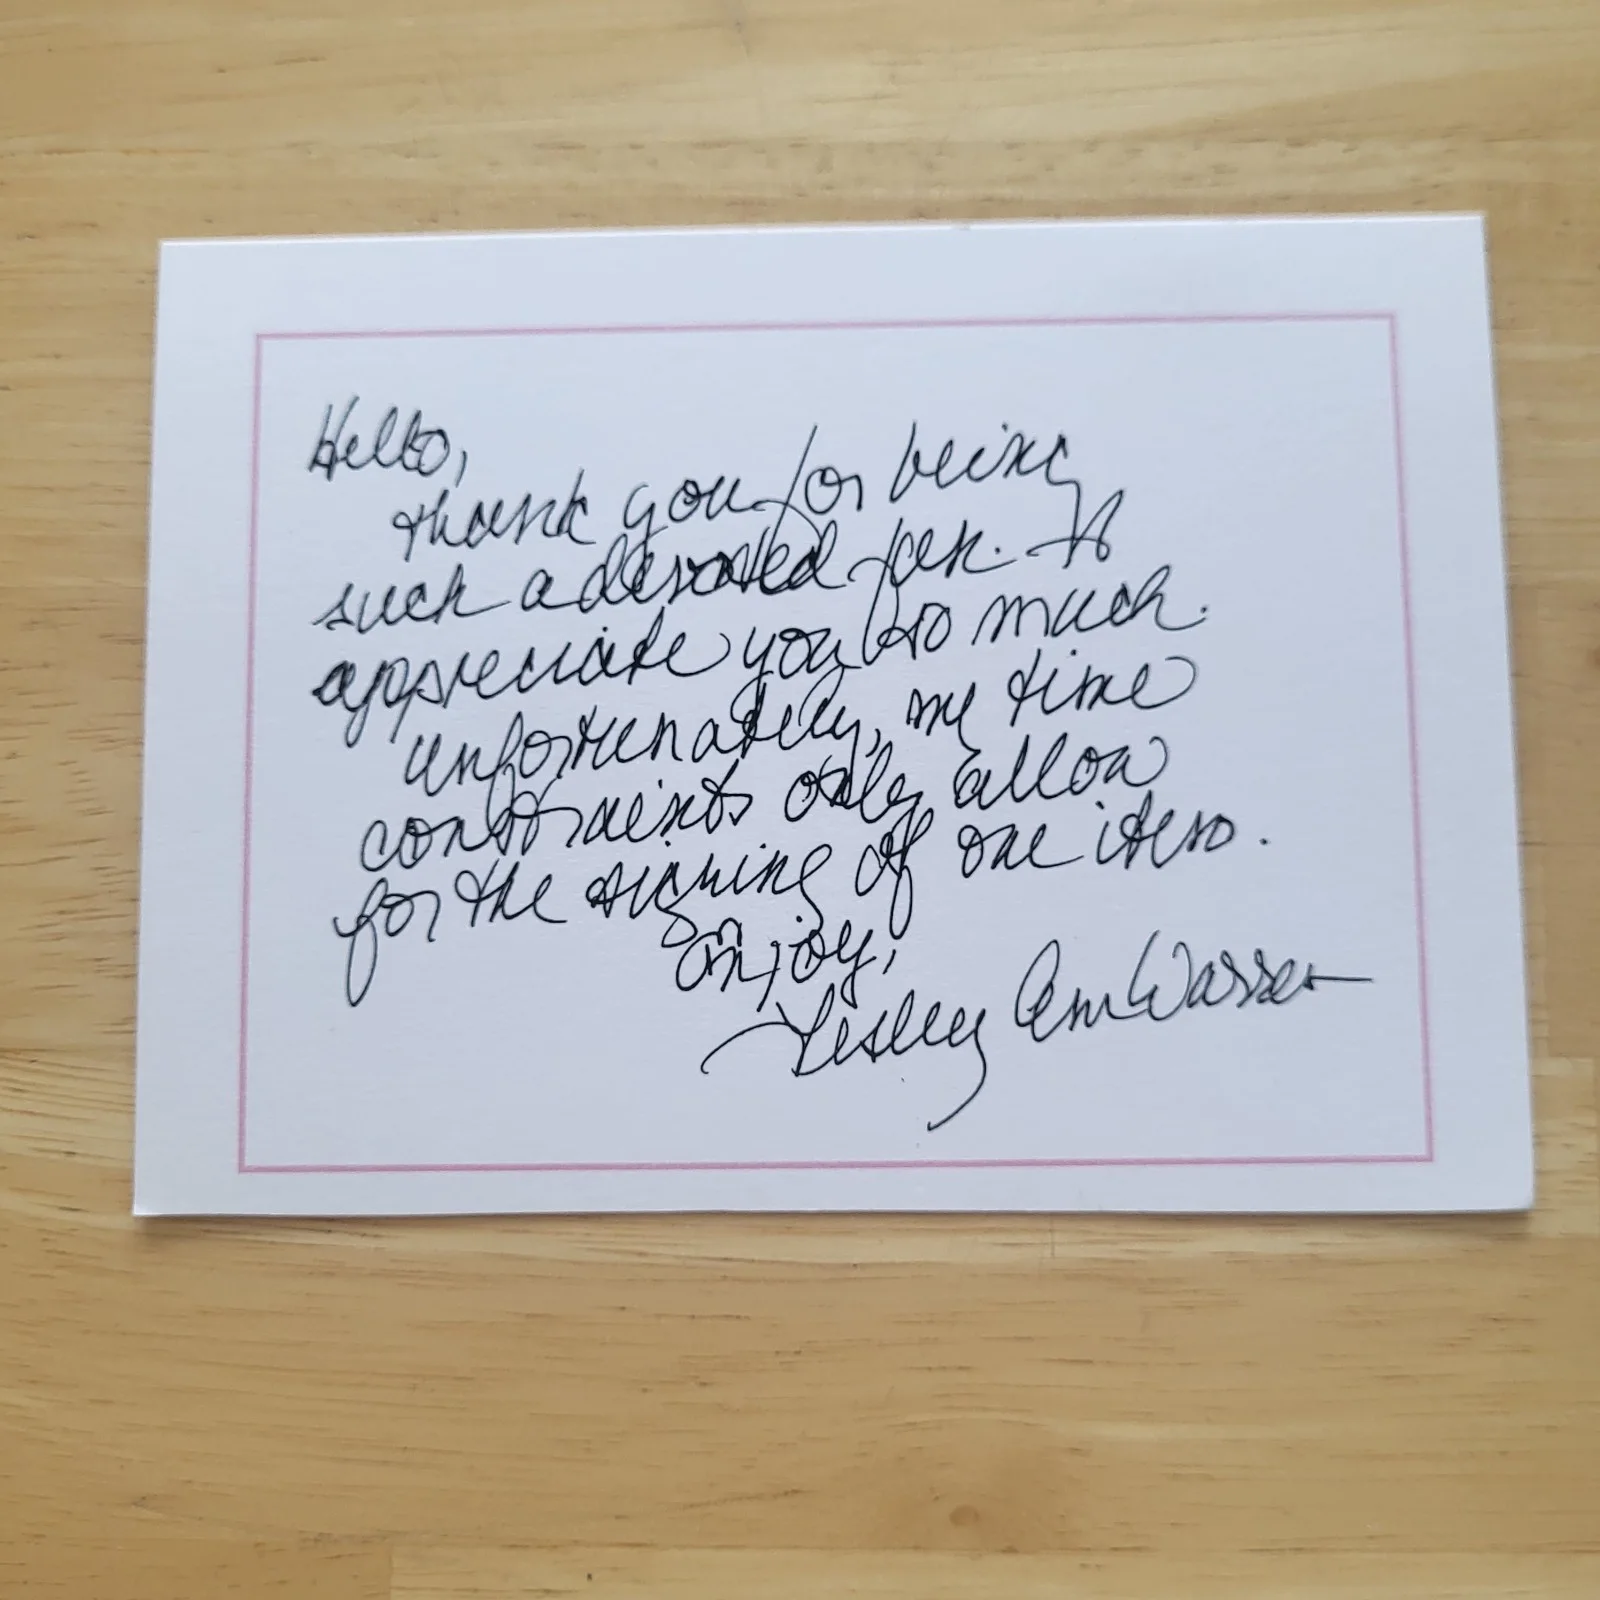 Hello,
thank you for being
such a devoted fan. I
appreciate you so much.
unfortunately, my time
constraints only allow
for the signing of one item.
Enjoy,
Lesley Ann Warren